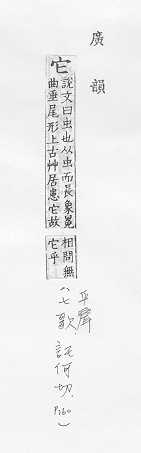 廣韻
它
說文曰虫也从虫而長象冤
曲垂尾形上古艸居患它故
相問無
它乎
平聲
(七歌.託何切. P160)